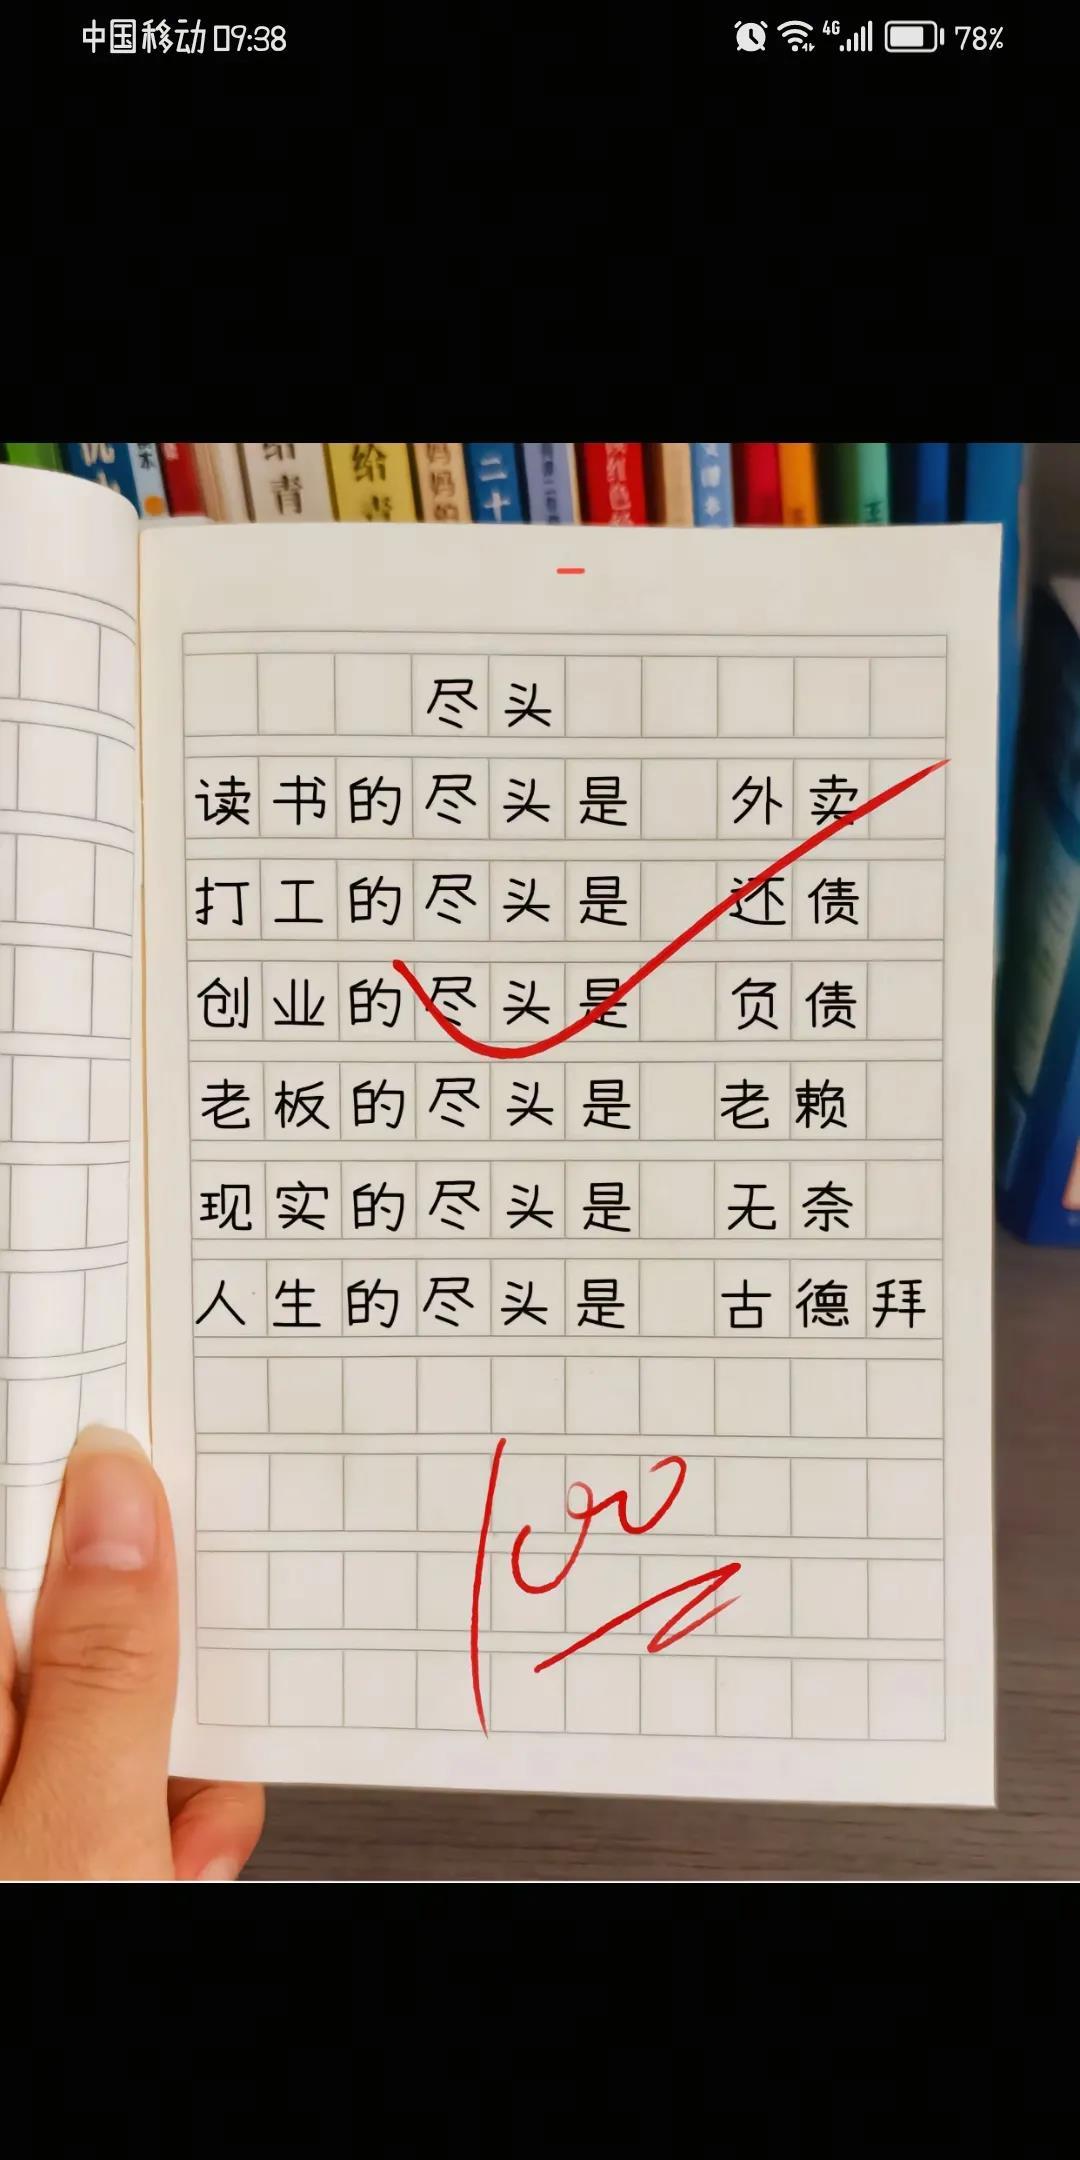 中国移动 09:38 4G 78%
尽头
读书的尽头是 外卖
打工的尽头是 还债
创业的尽头是 负债
老板的尽头是 老赖
现实的尽头是 无奈
人生的尽头是 古德拜
100
给青
给青
妈妈的
二十